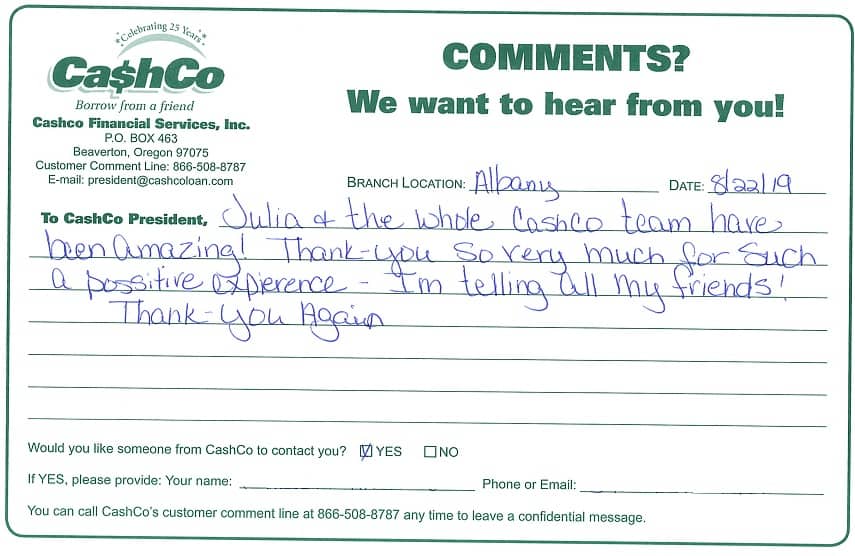 *Celebrating 25 Years*
Ca$hCo
Borrow from a friend
Cashco Financial Services, Inc.
P.O. BOX 463
Beaverton, Oregon 97075
Customer Comment Line: 866-508-8787
E-mail: president@cashcoloan.com
COMMENTS?
We want to hear from you!
BRANCH LOCATION: Albany DATE: 8/22/19
To CashCo President, Julia & the whole Cashco team have
been Amazing! Thank-you so very much for Such
a possitive expierence - I'm telling all my friends!
Thank-you Again
Would you like someone from CashCo to contact you? ☑ YES ☐ NO
If YES, please provide: Your name: Phone or Email:
You can call CashCo's customer comment line at 866-508-8787 any time to leave a confidential message.